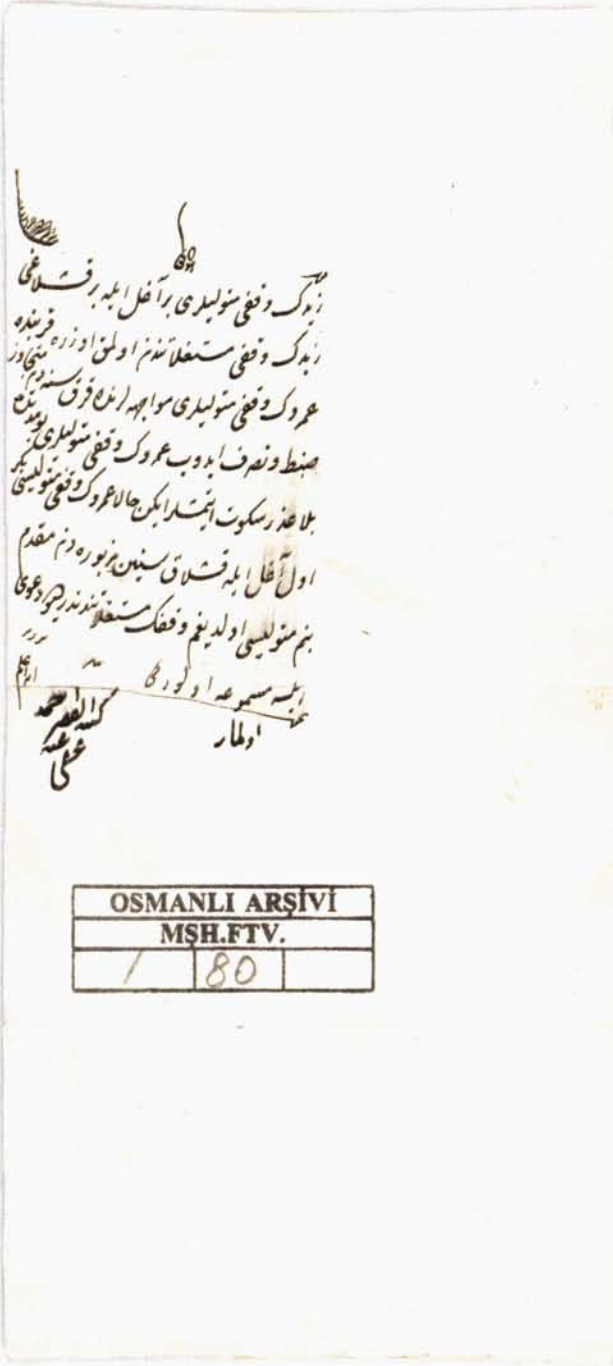 زيدك وقفى متوليلرى بر آغل ايله بر قشلاغى
زيدك وقفى مستغلاتندن اولمق اوزره قربنده
عمروك وقفى متوليلرى مواجهه لرنده قرق سنه دن متجاوز
ضبط و تصرف ايدوب عمروك وقفى متوليلرى بو مدتده
بلا عذر سكوت ايتمشلر ايكن حالا عمروك وقفى متوليسى بكر
اول آغل ايله قشلاق سنين مزبوره دن مقدم
بنم متوليسى اولديغم وقفك مستغلاتندندر ديو دعوى
ايلسه مسموعه اولورمى
اولماز
كتبه الفقير
عفى عنه
OSMANLI ARŞİVİ
MŞH.FTV.
1 80